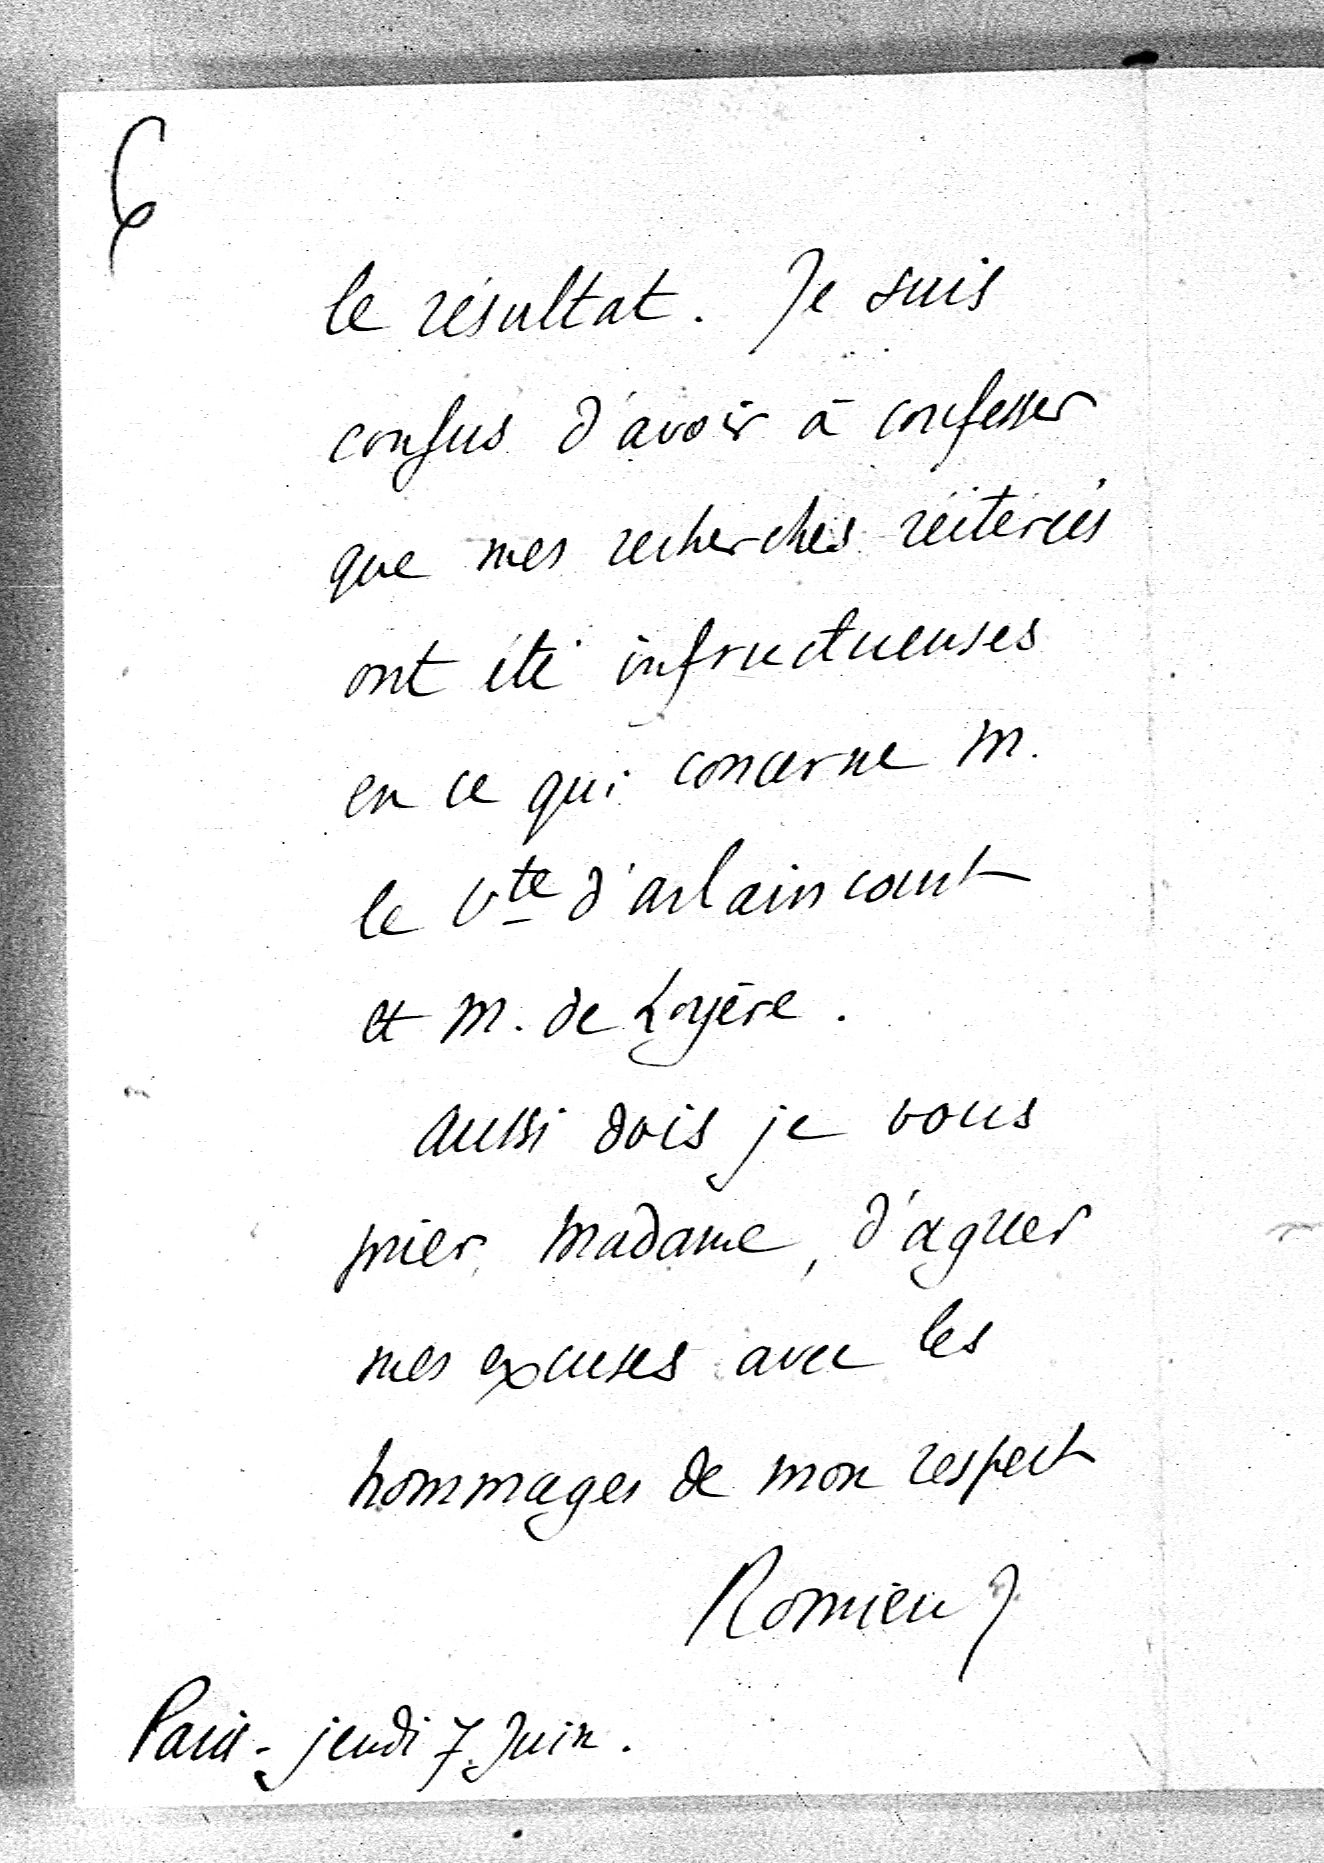 6
le résultat. Je suis
confus d'avoir à confesser
que mes recherches réitérées
ont été infructueuses
en ce qui concerne M.
le Vte d'arlaincourt
et M. de Loyère.
aussi dois je vous
prier, Madame, d'agréer
mes excuses avec les
hommages de mon respect
Romieu
Paris - jeudi 7 Juin.